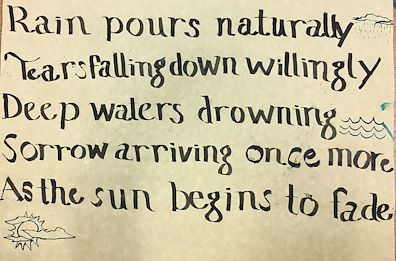 Rain pours naturally
Tears falling down willingly
Deep waters drowning
Sorrow arriving once more
As the sun begins to fade